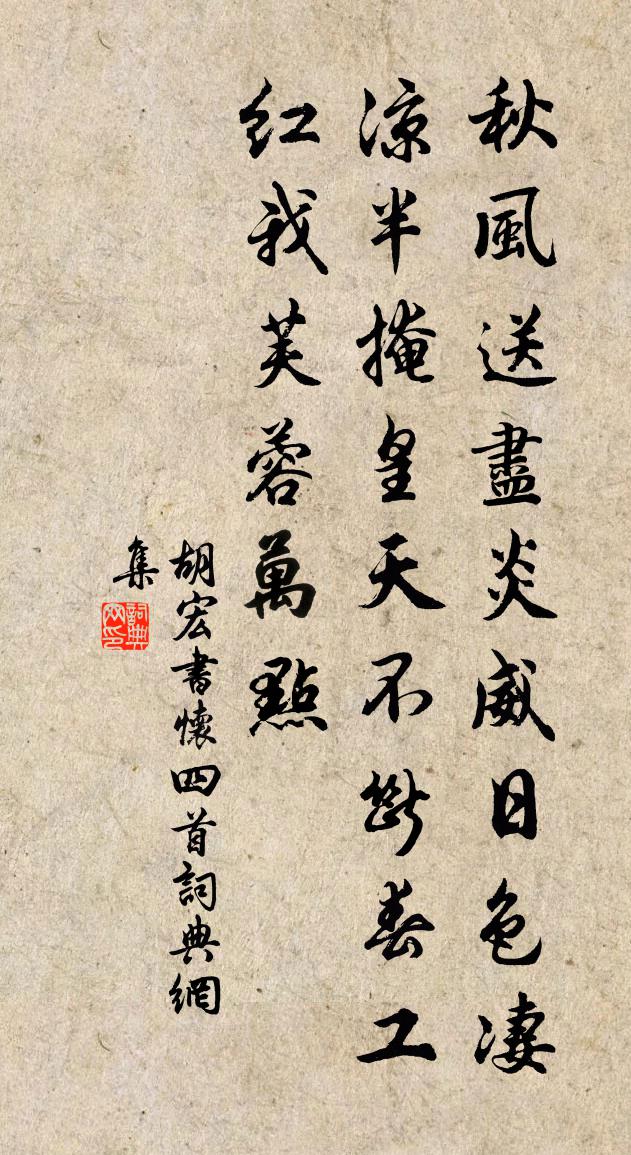 秋風送盡炎威日色凄
涼半掩皇天不斷春工
紅我芙蓉萬點
胡宏書懷四首詞典網
集
詞典
网印